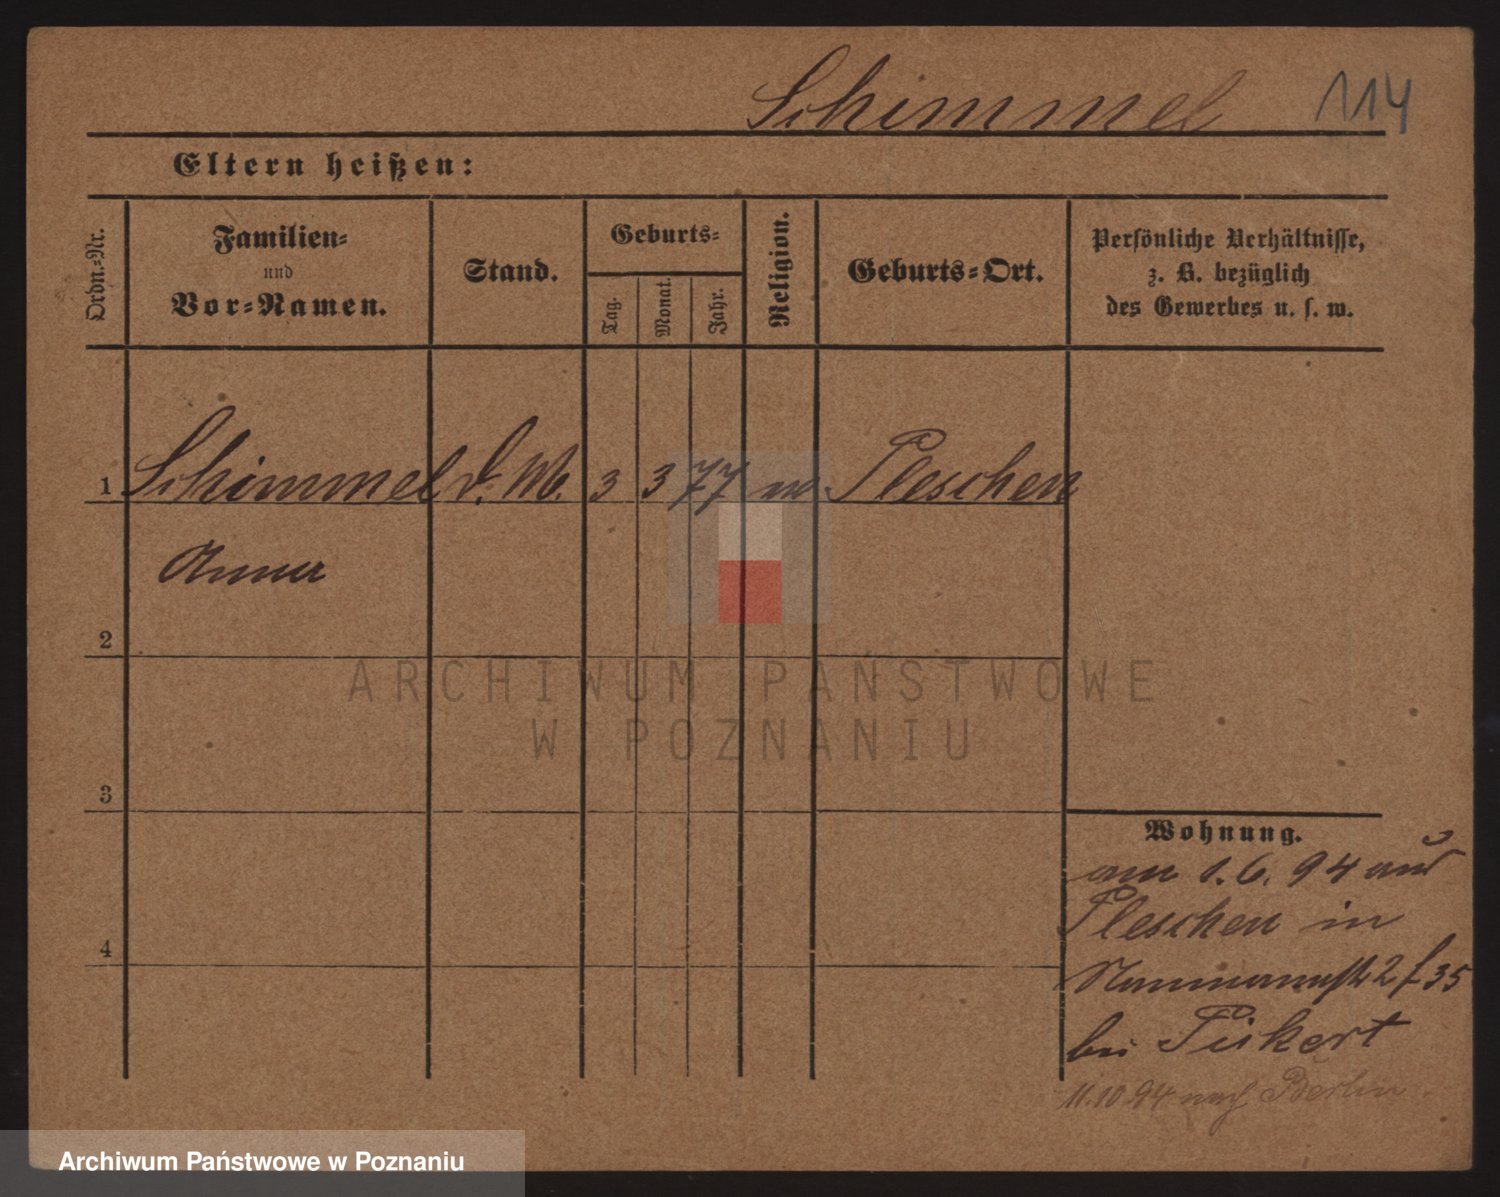 Schimmel 114
Eltern heißen:
Ordn.=Nr.
Familien=
und
Vor=Namen.
Stand.
Geburts=
Tag.
Monat.
Jahr.
Religion.
Geburts=Ort.
Persönliche Verhältnisse,
z. B. bezüglich
des Gewerbes u. s. w.
1 Schimmel d. M. 3 3 77 Pleschen
Anna
2
3
4
Wohnung.
am 1.6.94 aus
Pleschen in
2 35
bei Pickert
11.10.94 nach Berlin
ARCHIWUM PAŃSTWOWE
W POZNANIU
Archiwum Państwowe w Poznaniu